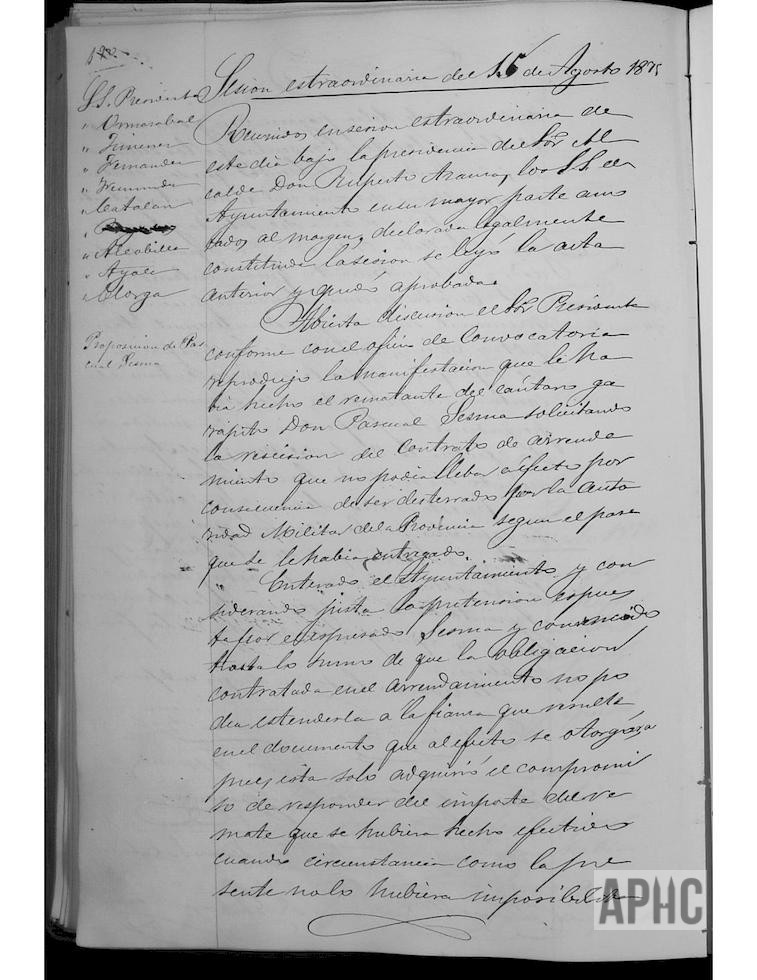 Sesion estraordinaria del 15 de Agosto 1875
SS. Presidente
" Ormazabal
" Jimenez
" Fernandez
" Catalan
" Alcobilla
" Ayala
" Elorga
Reunidos en sesion estraordinaria de
este dia bajo la presidencia del Sor Al
calde Don Ruperto Azama, los SS. de
Ayuntamiento en su mayor parte ano
tados al margen, declarada legalmente
constituida la sesion se leyó la acta
anterior y quedó aprobada.
Proposicion de Pas
cual Sesma
Abierta discusion el Sor Presidente
conforme con el oficio de Convocatoria
reprodujo la manifestacion que le ha
bia hecho el rematante del cántaro ga
rapito Don Pascual Sesma solicitando
la rescision del Contrato de arrenda
miento que no podia llebar a efecto por
consecuencia de ser desterrado por la Auto
ridad Militar de la Provincia segun el pase
que se le habia entregado.
Enterado el Ayuntamiento y con
siderando justa la pretension espues
ta por el espresado Sesma y convencido
hasta lo sumo de que la obligacion
contratada en el arrendamiento no po
dia estenderla a la fianza que resulta
en el documento que al efecto se otorgára
pues esta solo adquirió el compromi
so de responder del importe del re
mate que se hubiera hecho efectivo
cuando circunstancia como la pre
sente no lo hubiera imposibilita
APHC